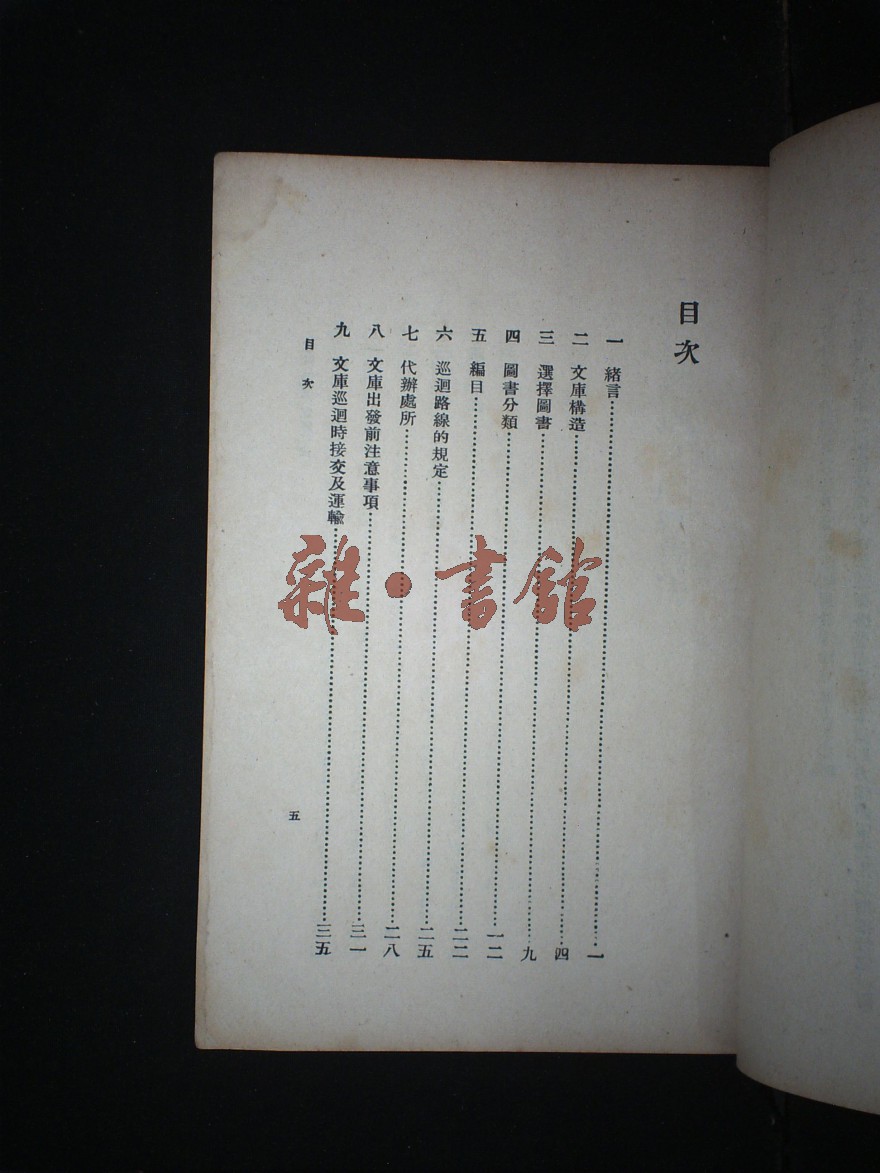 目次
一 緒言……一
二 文庫構造……四
三 選擇圖書……九
四 圖書分類……一二
五 編目……二二
六 巡迴路線的規定……二五
七 代辦處所……二八
八 文庫出發前注意事項……三一
九 文庫巡迴時接交及運輸……三五
目次
五
雜·書館